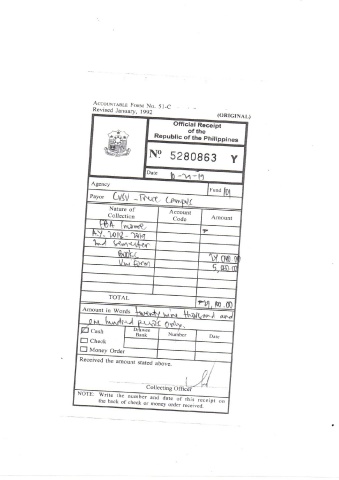 ACCOUNTABLE FORM No. 51-C
Revised January, 1992
(ORIGINAL)
Official Receipt
of the
Republic of the Philippines
Nº 5280863 Y
Date
Agency
Fund 101
Payor CVSU - Campus
Nature of Collection Account Code Amount
A.Y. 2018-2019
2nd Semester
5,000.00
TOTAL
Amount in Words twenty nine thousand and
one hundred pesos only.
Cash Drawee Bank Number Date
Check
Money Order
Received the amount stated above.
Collecting Officer
NOTE: Write the number and date of this receipt on
the back of check or money order received.